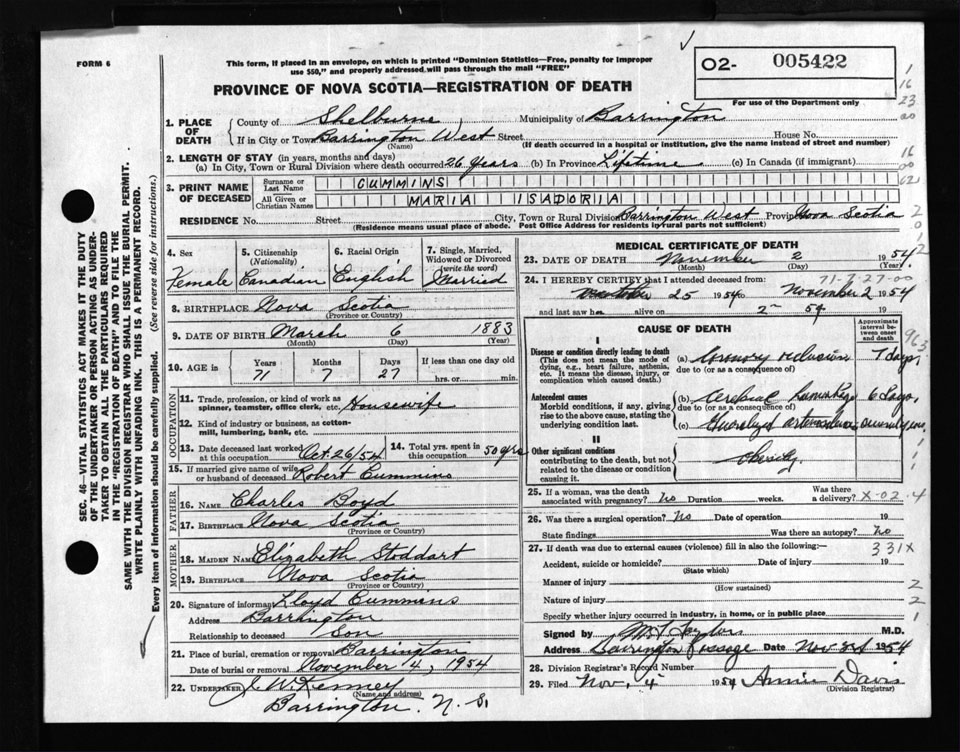 FORM 6
This form, if placed in an envelope, on which is printed "Dominion Statistics—Free, penalty for improper
use $50," and properly addressed will pass through the mail "FREE"
PROVINCE OF NOVA SCOTIA—REGISTRATION OF DEATH
O2- 005422
For use of the Department only
SEC. 46—VITAL STATISTICS ACT MAKES IT THE DUTY
OF THE UNDERTAKER OR PERSON ACTING AS UNDER-
TAKER TO OBTAIN ALL THE PARTICULARS REQUIRED
IN THE "REGISTRATION OF DEATH" AND TO FILE THE
SAME WITH THE DIVISION REGISTRAR WHO SHALL ISSUE THE BURIAL PERMIT.
WRITE PLAINLY WITH UNFADING INK. THIS IS A PERMANENT RECORD.
Every item of Information should be carefully supplied. (See reverse side for instructions.)
1. PLACE OF DEATH
County of Shelburne Municipality of Barrington
If in City or Town Barrington West Street House No.
(Name) (If death occurred in a hospital or institution, give the name instead of street and number)
2. LENGTH OF STAY (in years, months and days)
(a) In City, Town or Rural Division where death occurred 26 years (b) In Province Lifetime (c) In Canada (if immigrant)
3. PRINT NAME OF DECEASED
Surname or Last Name CUMMINS
All Given or Christian Names MARIA ISADORIA
RESIDENCE No. Street City, Town or Rural Division Barrington West Province Nova Scotia
(Residence means usual place of abode. Post Office Address for residents in rural parts not sufficient)
4. Sex
Female
5. Citizenship
(Nationality)
Canadian
6. Racial Origin
English
7. Single, Married,
Widowed or Divorced
(write the word)
Married
8. BIRTHPLACE Nova Scotia
(Province or Country)
9. DATE OF BIRTH March 6 1883
(Month) (Day) (Year)
10. AGE in Years 71 Months 7 Days 27 If less than one day old
hrs. or min.
OCCUPATION
11. Trade, profession, or kind of work as
spinner, teamster, office clerk, etc. Housewife
12. Kind of industry or business, as cotton-
mill, lumbering, bank, etc.
13. Date deceased last worked
at this occupation Oct. 26/54
14. Total yrs. spent in
this occupation 50 yrs
15. If married give name of wife
or husband of deceased Robert Cummins
FATHER
16. NAME Charles Boyd
17. BIRTHPLACE Nova Scotia
(Province or Country)
MOTHER
18. MAIDEN NAME Elizabeth Stoddart
19. BIRTHPLACE Nova Scotia
(Province or Country)
20. Signature of informant Lloyd Cummins
Address Barrington
Relationship to deceased Son
21. Place of burial, cremation or removal Barrington
Date of burial or removal November 4, 1954
22. UNDERTAKER J. W. Kenney
(Name and address)
Barrington. N. S.
MEDICAL CERTIFICATE OF DEATH
23. DATE OF DEATH November 2 1954
(Month) (Day) (Year)
71-7-27-00
24. I HEREBY CERTIFY that I attended deceased from
October 25 1954 to November 2 1954
and last saw h alive on 2 54
CAUSE OF DEATH
Approximate
interval be-
tween onset
and death
I
Disease or condition directly leading to death
(This does not mean the mode of
dying, e.g., heart failure, asthenia,
etc. It means the disease, injury, or
complication which caused death.)
(a) Coronary occlusion 7 days
due to (or as a consequence of)
Antecedent causes
Morbid conditions, if any, giving
rise to the above cause, stating the
underlying condition last.
(b) Cerebral hemorrhage 6 days
due to (or as a consequence of)
(c)
II
Other significant conditions
contributing to the death, but not
related to the disease or condition
causing it.
obesity
25. If a woman, was the death
associated with pregnancy? No Duration weeks. Was there
a delivery? X-02-4
26. Was there a surgical operation? No Date of operation 19
State findings Was there an autopsy? No
27. If death was due to external causes (violence) fill in also the following:— 331X
Accident, suicide or homicide? Date of injury 19
(State which)
Manner of injury
(How sustained)
Nature of injury
Specify whether injury occurred in industry, in home, or in public place
Signed by M.D.
Address Barrington Passage Date Nov 3rd 1954
28. Division Registrar's Record Number
29. Filed Nov. 4 1954 Annie Davis
(Division Registrar)